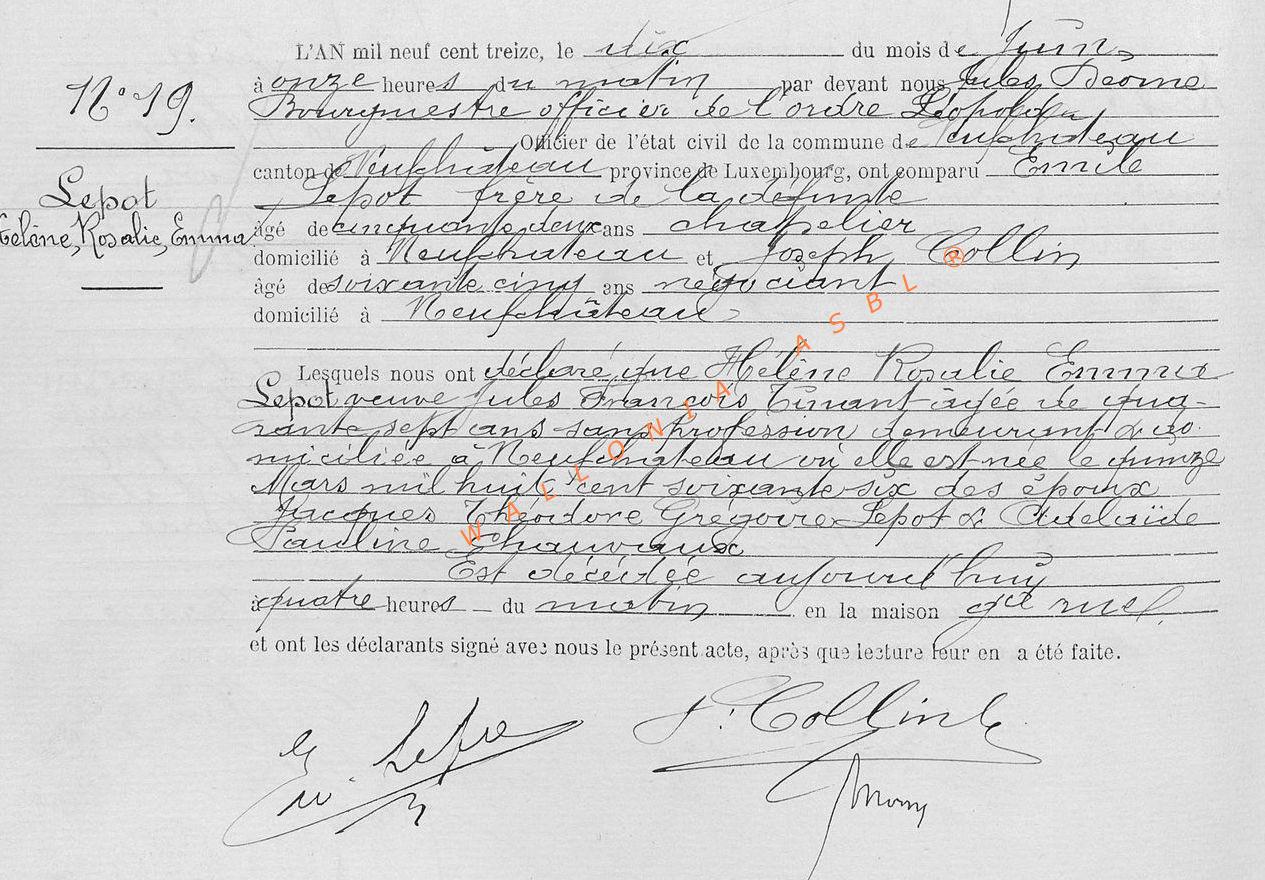 L'AN mil neuf cent treize, le dix du mois de Juin
à onze heures du matin par devant nous Jules
N° 19.
Bourgmestre officier de l'ordre Léopold
Officier de l'état civil de la commune de Neufchâteau
canton de Neufchâteau province de Luxembourg, ont comparu Emile
Lepot
Lepot frère de la défunte
Hélène, Rosalie, Emma
âgé de cinquante deux ans chapelier
domicilié à Neufchateau et Joseph Collin
âgé de soixante cinq ans négociant
domicilié à Neufchâteau
Lesquels nous ont déclaré que Hélène Rosalie Emma
Lepot veuve Jules François Tinant âgée de qua-
rante sept ans sans profession demeurant & do
miciliée à Neufchateau où elle est née le quinze
Mars mil huit cent soixante-six des époux
Jacques Théodore Grégoire Lepot & Adelaïde
Pauline Chauvaux
Est décédée aujourd'huy
à quatre heures du matin en la maison gde rue
et ont les déclarants signé avec nous le présent acte, après que lecture leur en a été faite.
J. Collin
WALLONIA ASBL ®